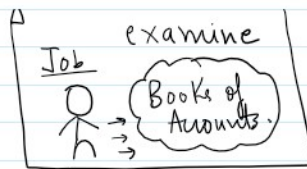 examine
Job
Books of
Accounts.